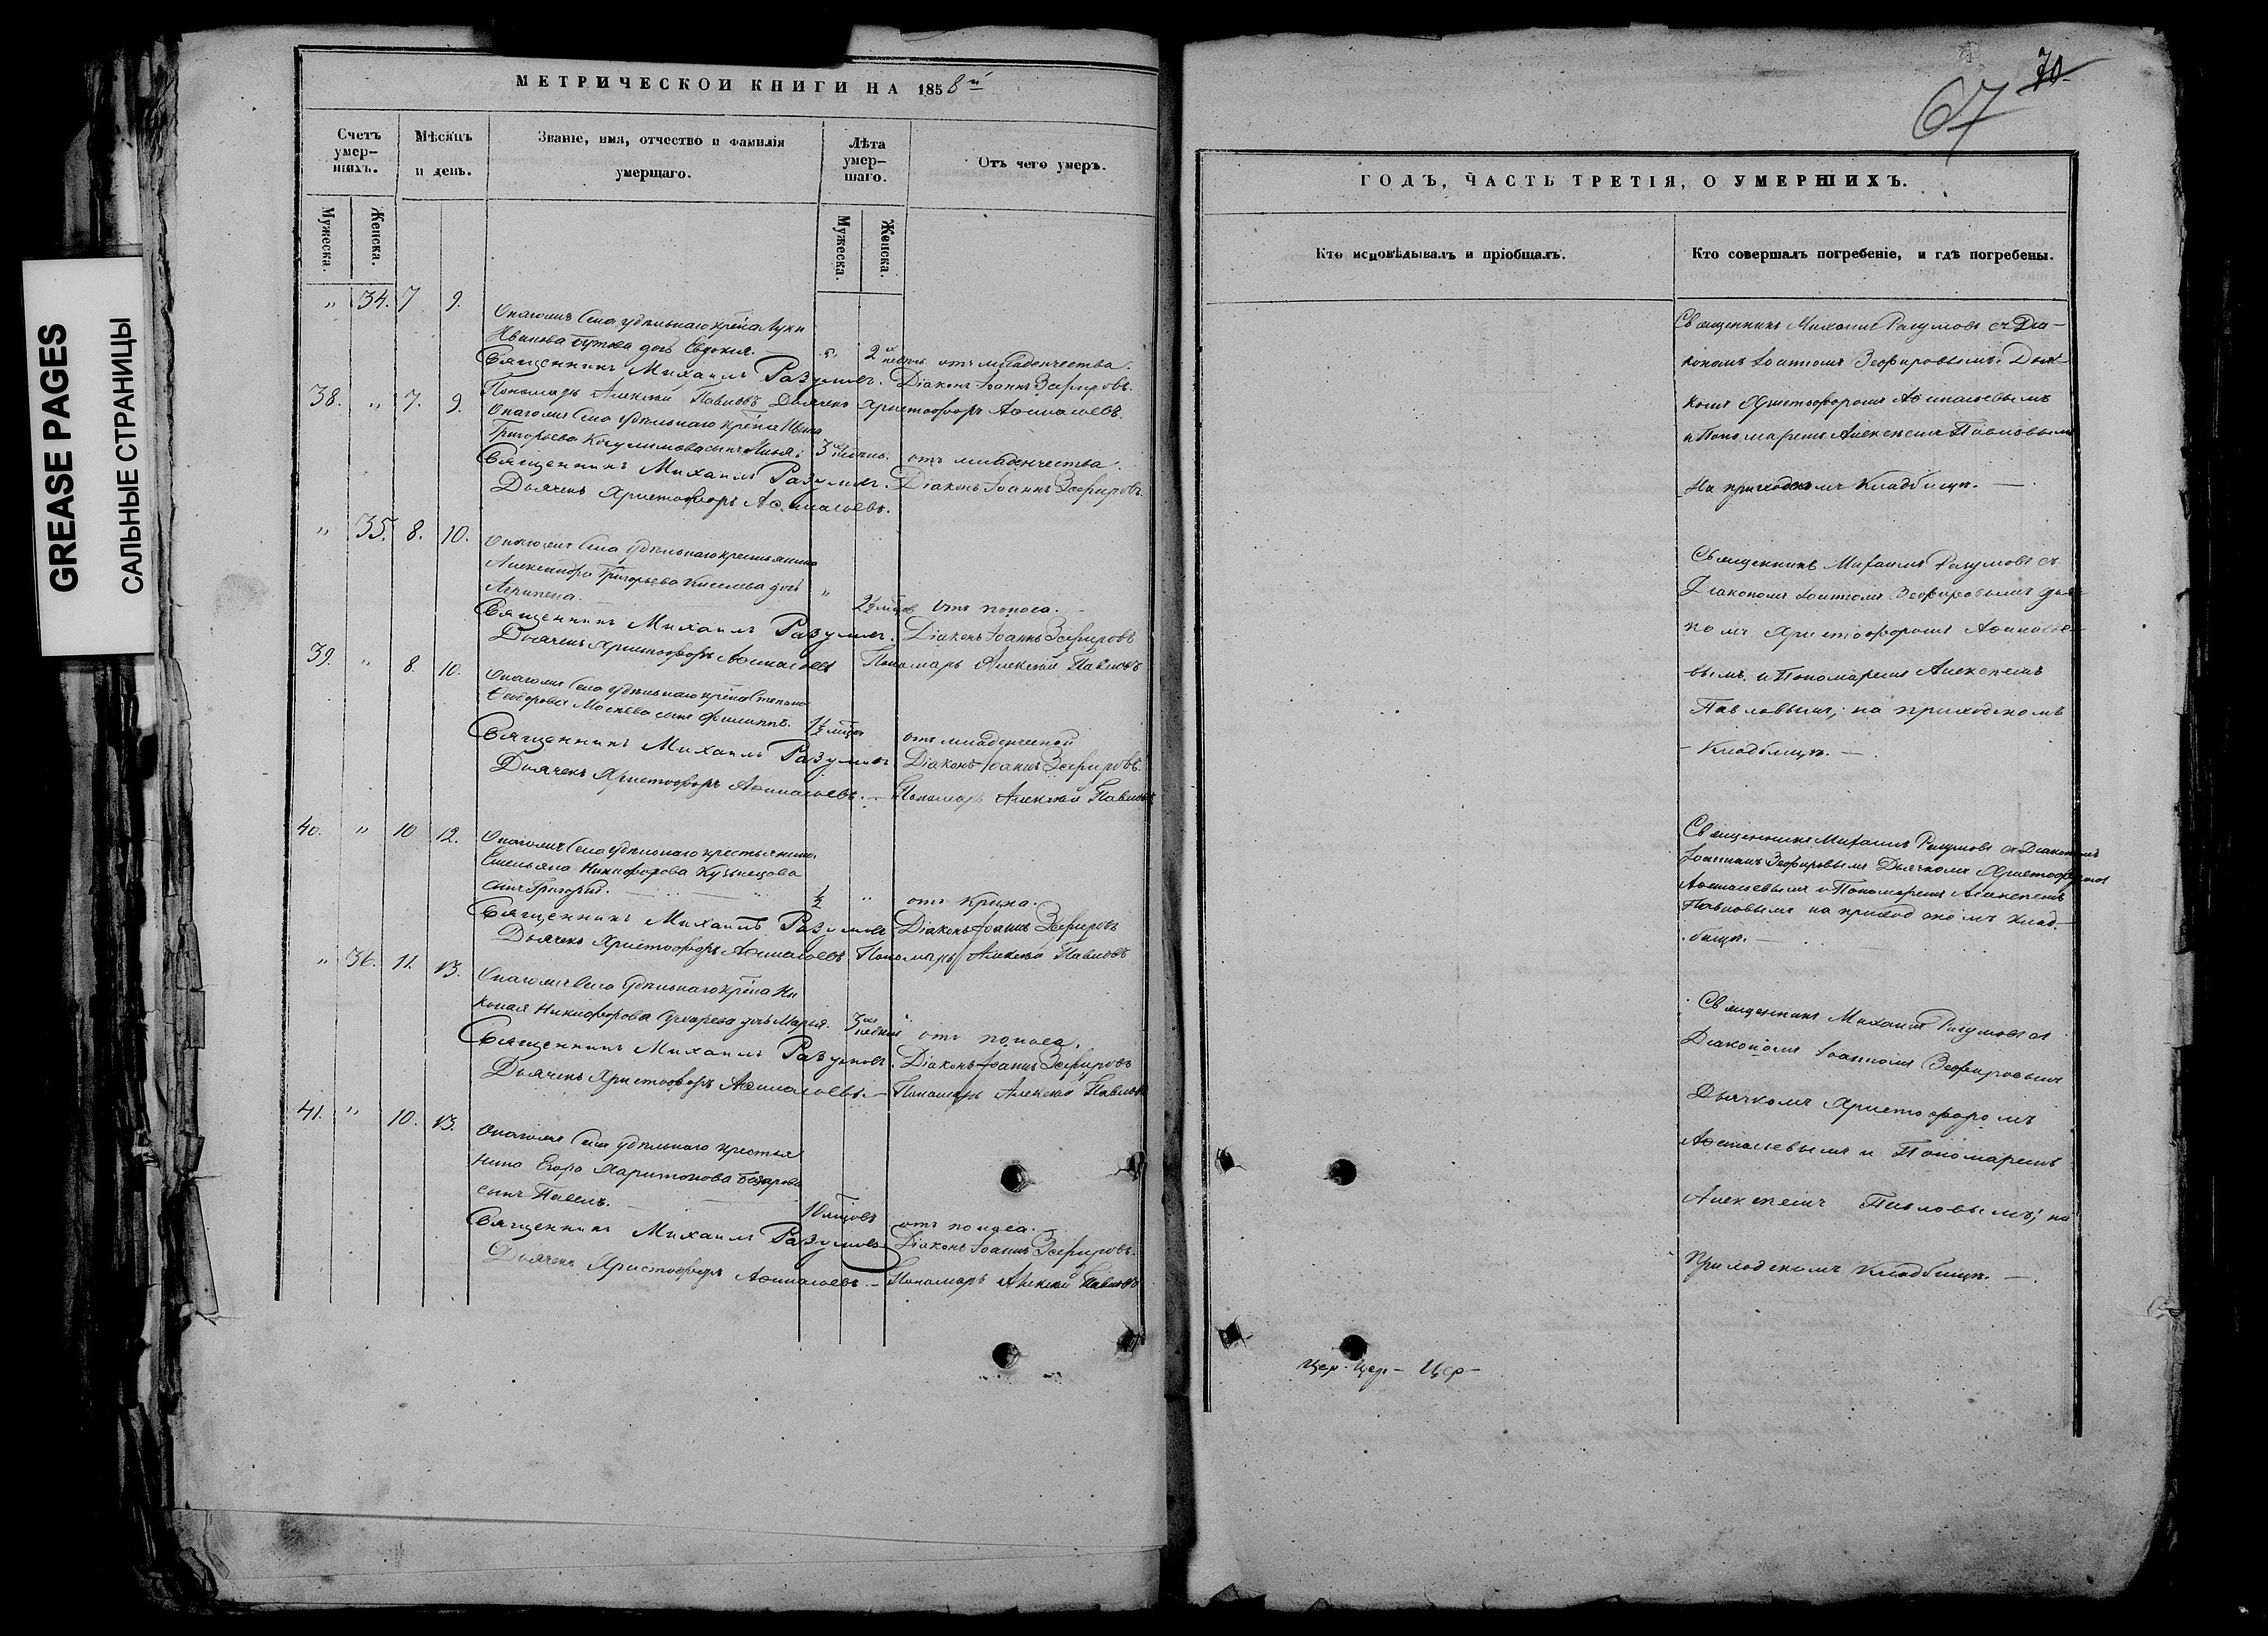 GREASE PAGES
САЛЬНЫЕ СТРАНИЦЫ
МЕТРИЧЕСКОЙ КНИГИ НА 1858й
Счетъ умер-шихъ.
Мѣсяцъ и день.
Званіе, имя, отчество и фамилія умершаго.
Лѣта умер-шаго.
Отъ чего умеръ.
Мужеска.
Женска.
Мужеска.
Женска.
" 34. 7 9.
села удѣльнаго кре͠на Луки
Иванова дочь Евдокия. " 2 недѣль отъ младенчества.
Священникъ Михаилъ Разумовъ. Діаконъ Іоаннъ Зефировъ.
Пономарь Алексѣй Павловъ Дьячекъ Христофоръ Аѳинагоевъ
38. " 7. 9.
села удѣльнаго кре͠на Ивана
Григорьева сынъ Илья. 3 недѣль. отъ младенчества.
Священникъ Михаилъ Разумовъ. Діаконъ Іоаннъ Зефировъ.
Дьячекъ Христофоръ
" 35. 8. 10.
села удѣльнаго крестьянина
Александра Григорьева Киселева дочь
Агрипена. " 2½ мѣсяц. отъ поноса.
Священникъ Михаилъ Разумовъ. Діаконъ Іоаннъ Зефировъ
Дьячекъ Христофоръ Пономарь Алексѣй Павловъ
39. " 8. 10.
села удѣльнаго кре͠на Степана
Ѳеодорова сынъ Филиппъ. 1½ мѣсяц. отъ младенческой
Священникъ Михаилъ Разумовъ Діаконъ Іоаннъ Зефировъ.
Дьячекъ Христофоръ Пономарь Алексѣй Павловъ
40. " 10 12.
села удѣльнаго крестьянина
Емельяна Никифорова Кузнецова
сынъ Григорій. ½ " отъ крика.
Священникъ Михаилъ Разумовъ Діаконъ Іоаннъ Зефировъ
Дьячекъ Христофоръ Пономарь Алексѣй Павловъ
" 36. 11. 13.
села удѣльнаго кре͠на Ни
колая Никифорова дочь Марья. 3 недѣли отъ поноса.
Священникъ Михаилъ Разумовъ. Діаконъ Іоаннъ Зефировъ
Дьячекъ Христофоръ Пономарь Алексѣй Павловъ
41. " 10. 13.
села удѣльнаго крестья
нина Егора Харитонова
сынъ Павелъ. 10 мѣсяцовъ отъ поноса.
Священникъ Михаилъ Разумовъ Діаконъ Іоаннъ Зефировъ.
Дьячекъ Христофоръ Пономарь Алексѣй Павловъ
70
67
ГОДЪ, ЧАСТЬ ТРЕТІЯ, О УМЕРШИХЪ.
Кто исповѣдывалъ и пріобщалъ.
Кто совершалъ погребеніе, и гдѣ погребены.
Священникъ Михаилъ Разумовъ съ Діа-
кономъ Іоанномъ Зефировымъ, Дьяч-
комъ Христофоромъ
и Пономаремъ Алексѣемъ Павловымъ
На приходскомъ кладбищѣ. —
Священникъ Михаилъ Разумовъ съ
Діакономъ Іоанномъ Зефировымъ дьяч-
комъ Христофоромъ
вымъ и Пономаремъ Алексѣемъ
Павловымъ, на приходскомъ
- Кладбищѣ. —
Священникъ Михаилъ Разумовъ съ Діакономъ
Іоанномъ Зефировымъ Дьячкомъ Христофоромъ
и Пономаремъ Алексѣемъ
Павловымъ на приходскомъ клад-
бищѣ. —
Священникъ Михаилъ Разумовъ съ
Діакономъ Іоанномъ Зефировымъ
Дьячкомъ Христофоромъ
и Пономаремъ
Алексѣемъ Павловымъ, на
Приходскомъ Кладбищѣ. —
Цер. Цер - Цер -